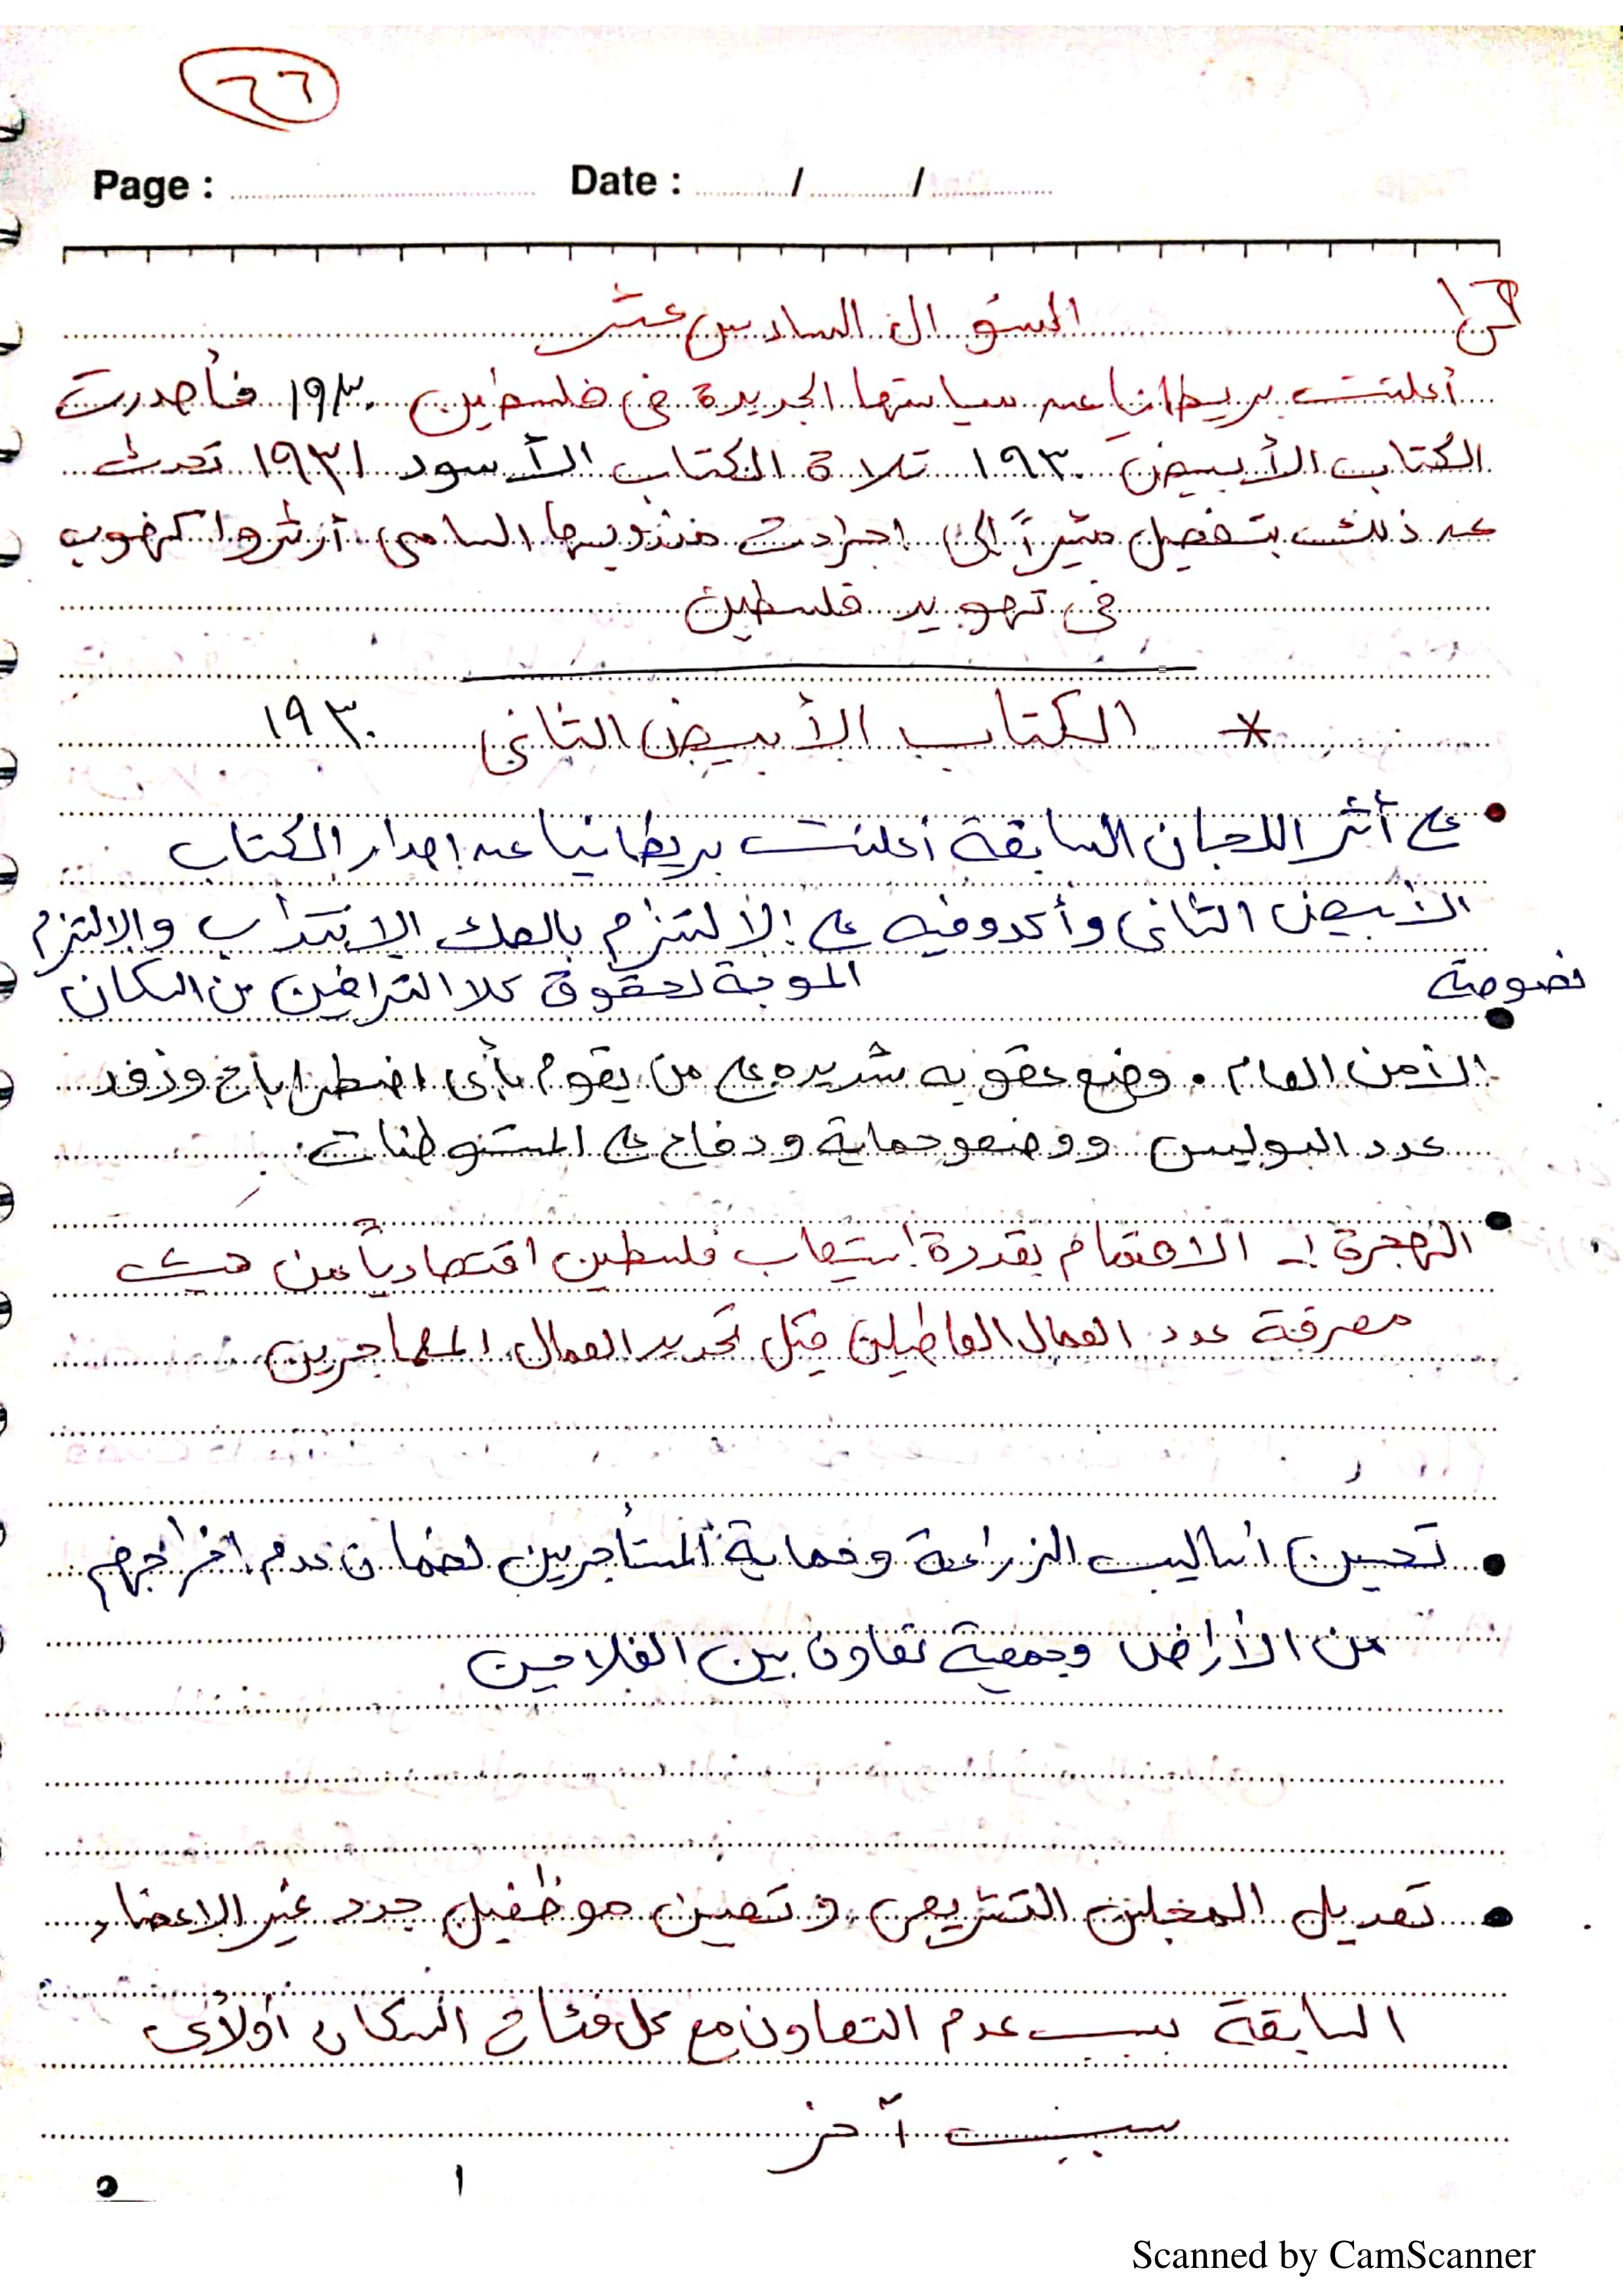 ٦٦
Page : Date : / /
السؤال السادس عشر
أعلنت بريطانيا عن سياستها الجديدة في فلسطين ١٩٣٠ فأصدرت
الكتاب الأبيض ١٩٣٠ تلاة الكتاب الأسود ١٩٣١ تحدث
عن ذلك بتفصيل مشيراً إلى اجراءت مندوبيها السامى أرثروا كهوب
فى تهويد فلسطين
* الكتاب الأبيض الثانى ١٩٣٠
• على أثر اللجان السابقة أعلنت بريطانيا عن إصدار الكتاب
الأبيض الثانى وأكدوفيه على الألتزم بالصك الانتداب والالتزم
نصوصة الموجة لحقوق كلا الترافين من السكان
• الأمن العام . وضع عقوبه شديده على من يقوم بأى اضطراباخ وزود
عدد البوليس ووضعو حماية ودفاع على المستوطنات
• الهجرة :- الاهتمام بقدرة استيعاب فلسطين اقتصادياً من حيث
معرفة عدد العمال العاطلين قبل تحديد العمال المهاجرين
• تحسين أساليب الزراعة وحماية المستأجرين لضمان عدم اخراجهم
من الأراض وجمعية تعاون بين الفلاحين
• تعديل المجلس التشريعى وتعين موظفين جدد غير الاعضاء
السابقة بسبب عدم التعاون مع كل فئات السكان أولأى
سبب آخر
Scanned by CamScanner